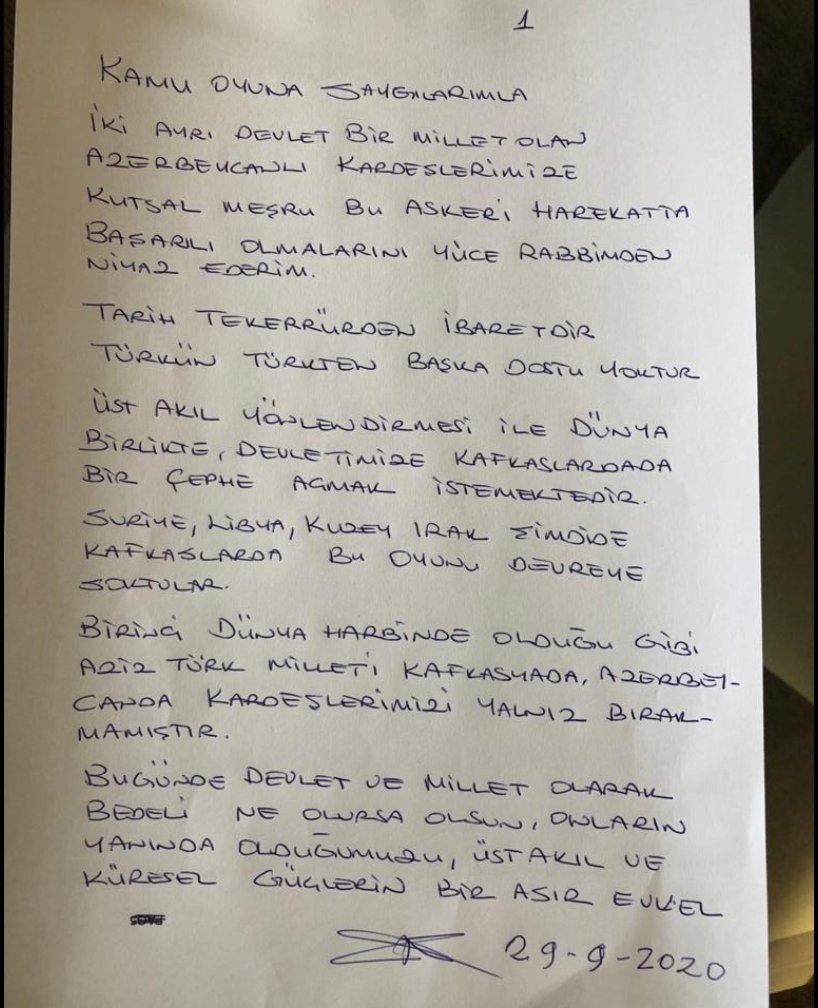 1
KAMU OYUNA SAYGILARIMLA
İKİ AYRI DEVLET BİR MİLLET OLAN
AZERBEYCANLI KARDEŞLERİMİZE
KUTSAL MEŞRU BU ASKER'İ HAREKATTA
BAŞARILI OLMALARINI YÜCE RABBİMDEN
NİYAZ EDERİM.
TARİH TEKERRÜRDEN İBARETDİR
TÜRKÜN TÜRKTEN BAŞKA DOSTU YOKTUR
ÜST AKIL YÖNLENDİRMESİ İLE DÜNYA
BİRLİKTE, DEVLETİMİZE KAFKASLARDADA
BİR ÇEPHE AÇMAK İSTEMEKTEDİR.
SURİYE, LİBYA, KUZEY IRAK ŞİMDİDE
KAFKASLARDA BU OYUNU DEVREYE
SOKTULAR.
BİRİNCİ DÜNYA HARBİNDE OLDUĞU GİBİ
AZİZ TÜRK MİLLET'İ KAFKASYADA, AZERBEY-
CANDA KARDEŞLERİMİZİ YALNIZ BIRAK-
MAMIŞTIR.
BUGÜNDE DEVLET VE MİLLET OLARAK
BEDELİ NE OLURSA OLSUN, ONLARIN
YANINDA OLDUĞUMUZU, ÜST AKIL VE
KÜRESEL GÜÇLERİN BİR ASIR EVVEL
29-9-2020